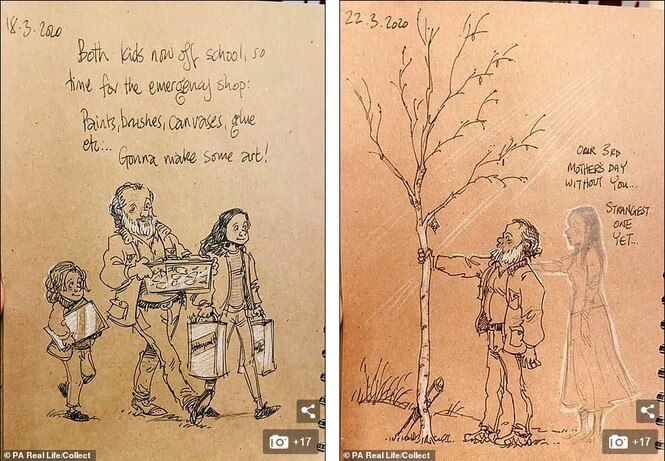 18-3-2020
Both kids now off school, so
time for the emergency shop:
Paints, brushes, canvases, glue
etc...
Gonna make some art!
+17
© PA Real Life/Collect
22.3.2020
OUR 3RD
MOTHER'S DAY
WITHOUT YOU...
STRANGEST
ONE
YET...
+17
© PA Real Life/Collect